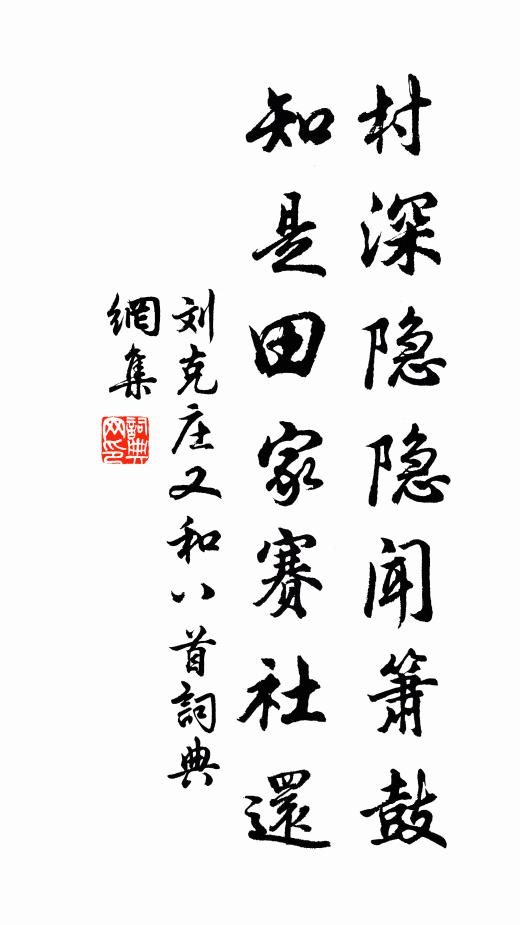 村深隐隐闻箫鼓
知是田家赛社還
刘克庄又和八首詞典
網集
詞典
网印